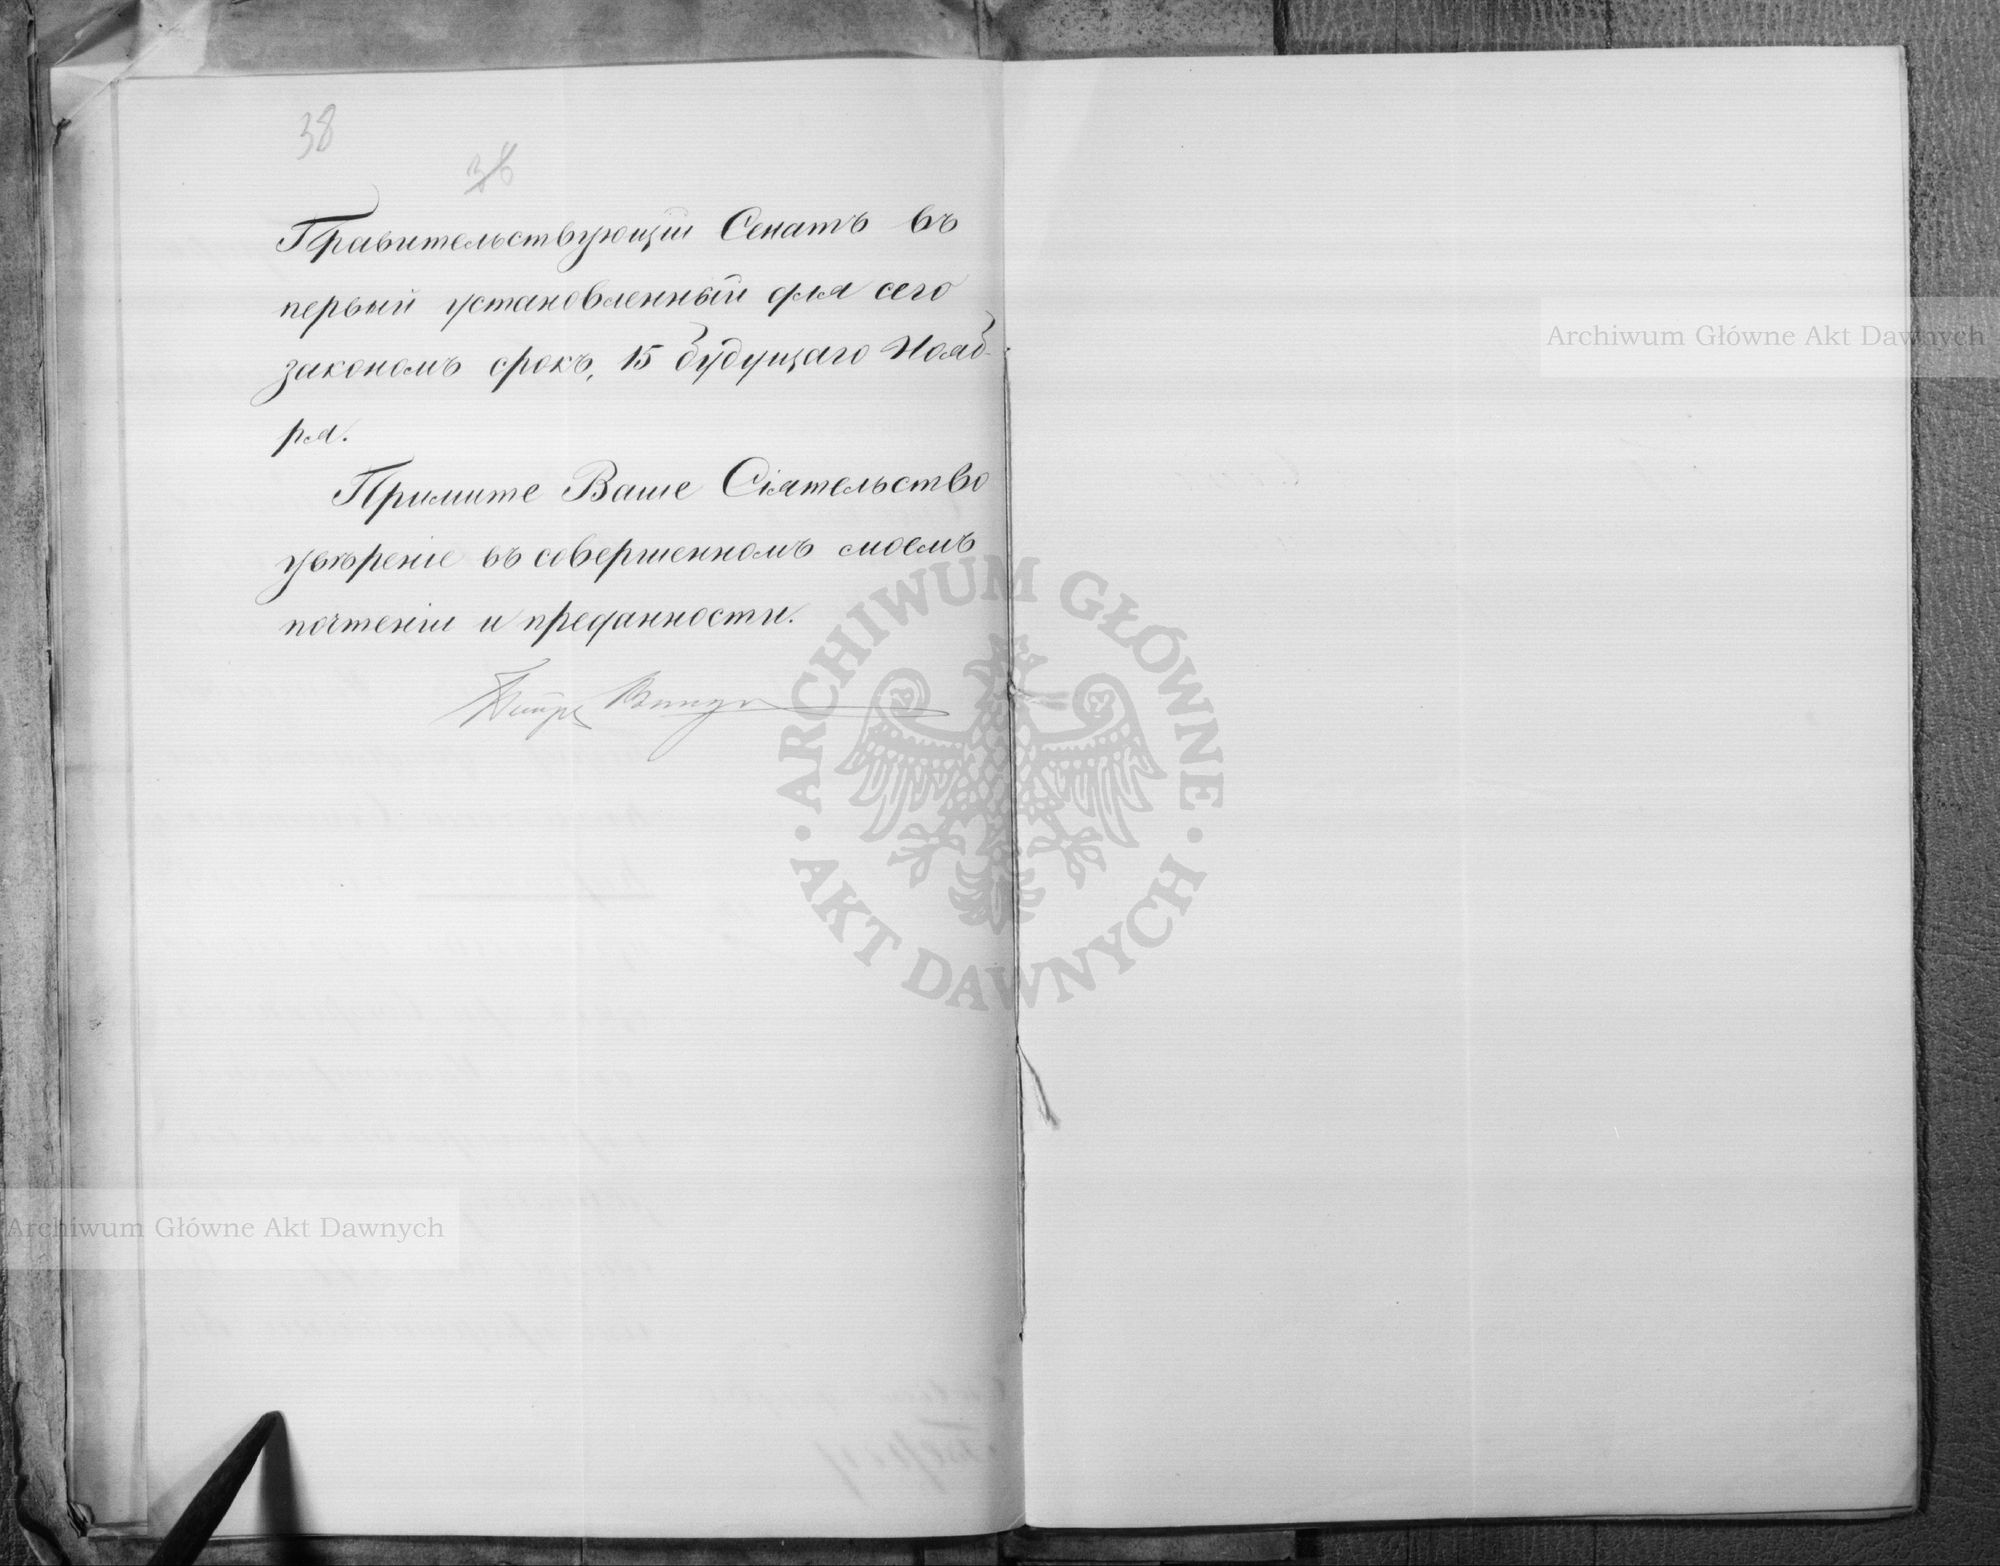 38
36
Правительствующій Сенатъ въ
первый установленный для сего
закономъ срокъ, 15 будущаго Нояб-
ря.
Примите Ваше Сіятельство
увѣреніе въ совершенномъ моемъ
почтеніи и преданности.
Archiwum Główne Akt Dawnych
ARCHIWUM GŁÓWNE AKT DAWNYCH
Archiwum Główne Akt Dawnych